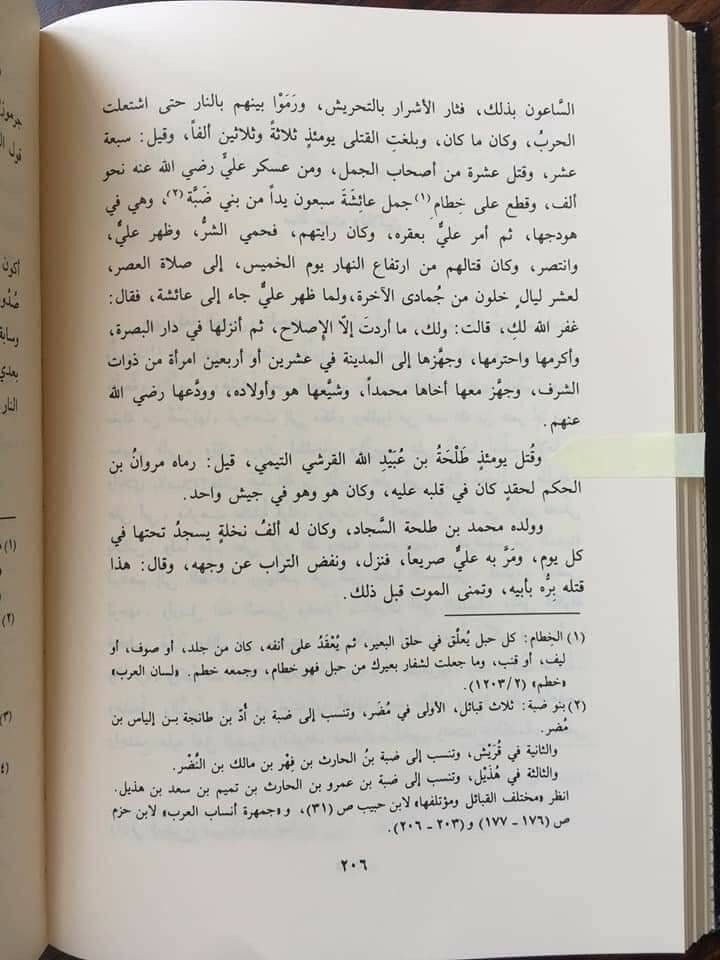 السَّاعون بذلك، فثار الأشرار بالتحريش، ورَمَوْا بينهم بالنار حتى اشتعلت
الحربُ، وكان ما كان، وبلغتِ القتلى يومئذٍ ثلاثةً وثلاثين ألفاً، وقيل: سبعة
عشر، وقتل عشرة من أصحاب الجمل، ومن عسكر عليٍّ رضي الله عنه نحو
ألف، وقطع على خِطامِ(١) جمل عائِشَةَ سبعون يداً من بني ضَبَّة(٢)، وهي في
هودجها، ثم أمر عليٌّ بعقره، وكان رايتهم، فحمي الشرُّ، وظهر عليٌّ،
وانتصر، وكان قتالهم من ارتفاع النهار يوم الخميس، إلى صلاة العصر،
لعشر ليالٍ خلون من جُمادى الآخرة، ولما ظهر عليٌّ جاء إلى عائشة، فقال:
غفر الله لكِ، قالت: ولك، ما أردتَ إلّا الإصلاح، ثم أنزلها في دار البصرة،
وأكرمها واحترمها، وجهَّزها إلى المدينة في عشرين أو أربعين امرأة من ذوات
الشرف، وجهز معها أخاها محمداً، وشيَّعها هو وأولاده، وودَّعها رضي الله
عنهم.
وقُتل يومئذٍ طَلْحَةُ بن عُبَيْدِ الله القرشي التيمي، قيل: رماه مروانُ بن
الحكم لحقدٍ كان في قلبه عليه، وكان هو وهو في جيش واحد.
وولده محمد بن طلحة السَّجاد، وكان له ألفُ نخلةٍ يسجدُ تحتها في
كل يوم، ومَرَّ به عليٌّ صريعاً، فنزل، ونفض التراب عن وجهه، وقال: هذا
قتله بِرُّه بأبيه، وتمنى الموت قبل ذلك.
(١) الخِطام: كل حبل يُعلَّق في حلق البعير، ثم يُعْقَدُ على أنفه، كان من جلد، أو صوف، أو
ليف، أو قنب، وما جعلت لشفار بعيرك من حبل فهو خطام، وجمعه خطم. «لسان العرب»
«خطم» (١٢٠٣/٢).
(٢) بنو ضبة: ثلاث قبائل، الأولى في مُضَر، وتنسب إلى ضبة بن أُدّ بن طانجة بن إلياس بن
مُضر.
والثانية في قُرَيْش، وتنسب إلى ضبة بنُ الحارث بن فِهْر بن مالك بن النُّضْر.
والثالثة في هُذَيْل، وتنسب إلى ضبة بن عمرو بن الحارث بن تميم بن سعد بن هذيل.
انظر «مختلف القبائل ومؤتلفها» لابن حبيب ص (٣١)، و«جمهرة أنساب العرب» لابن حزم
ص (١٧٦ - ١٧٧) و(٢٠٣ - ٢٠٦).
٢٠٦
جرموز
قول ا
أكون
صُدُو
وسابق
بعدي
النار
(١)
(٢)
(٣)